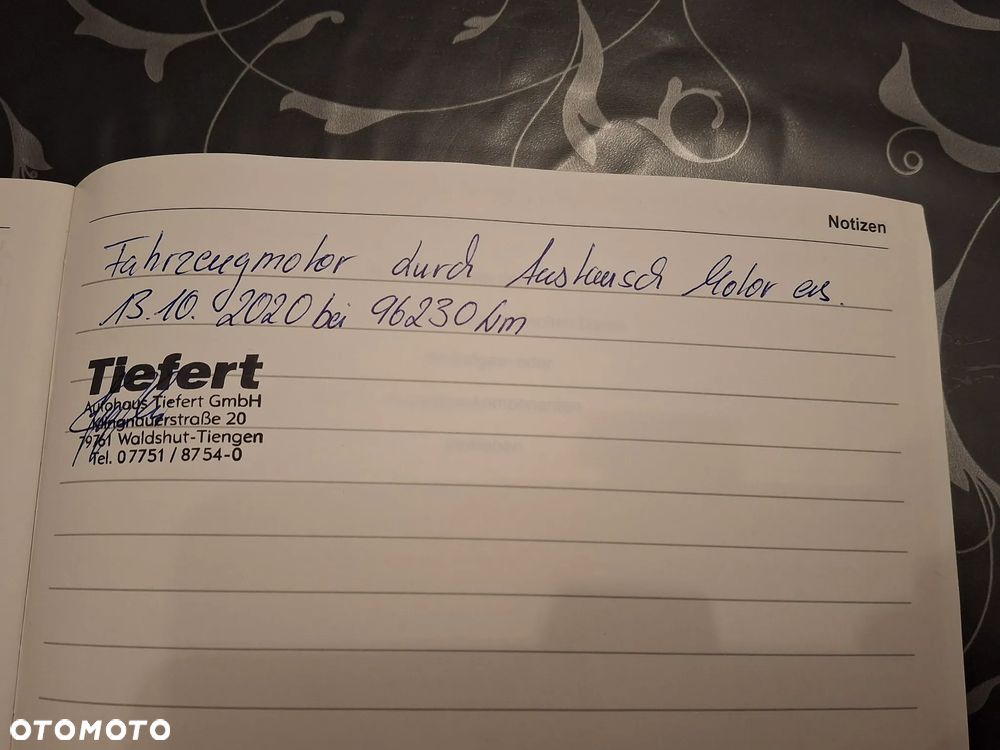 Notizen
Fahrzeugmotor durch Austausch Motor ers.
13.10. 2020 bei 96230 km
Tiefert
Autohaus Tiefert GmbH
Klingnauerstraße 20
79761 Waldshut-Tiengen
Tel. 07751 / 8754-0
OTOMOTO